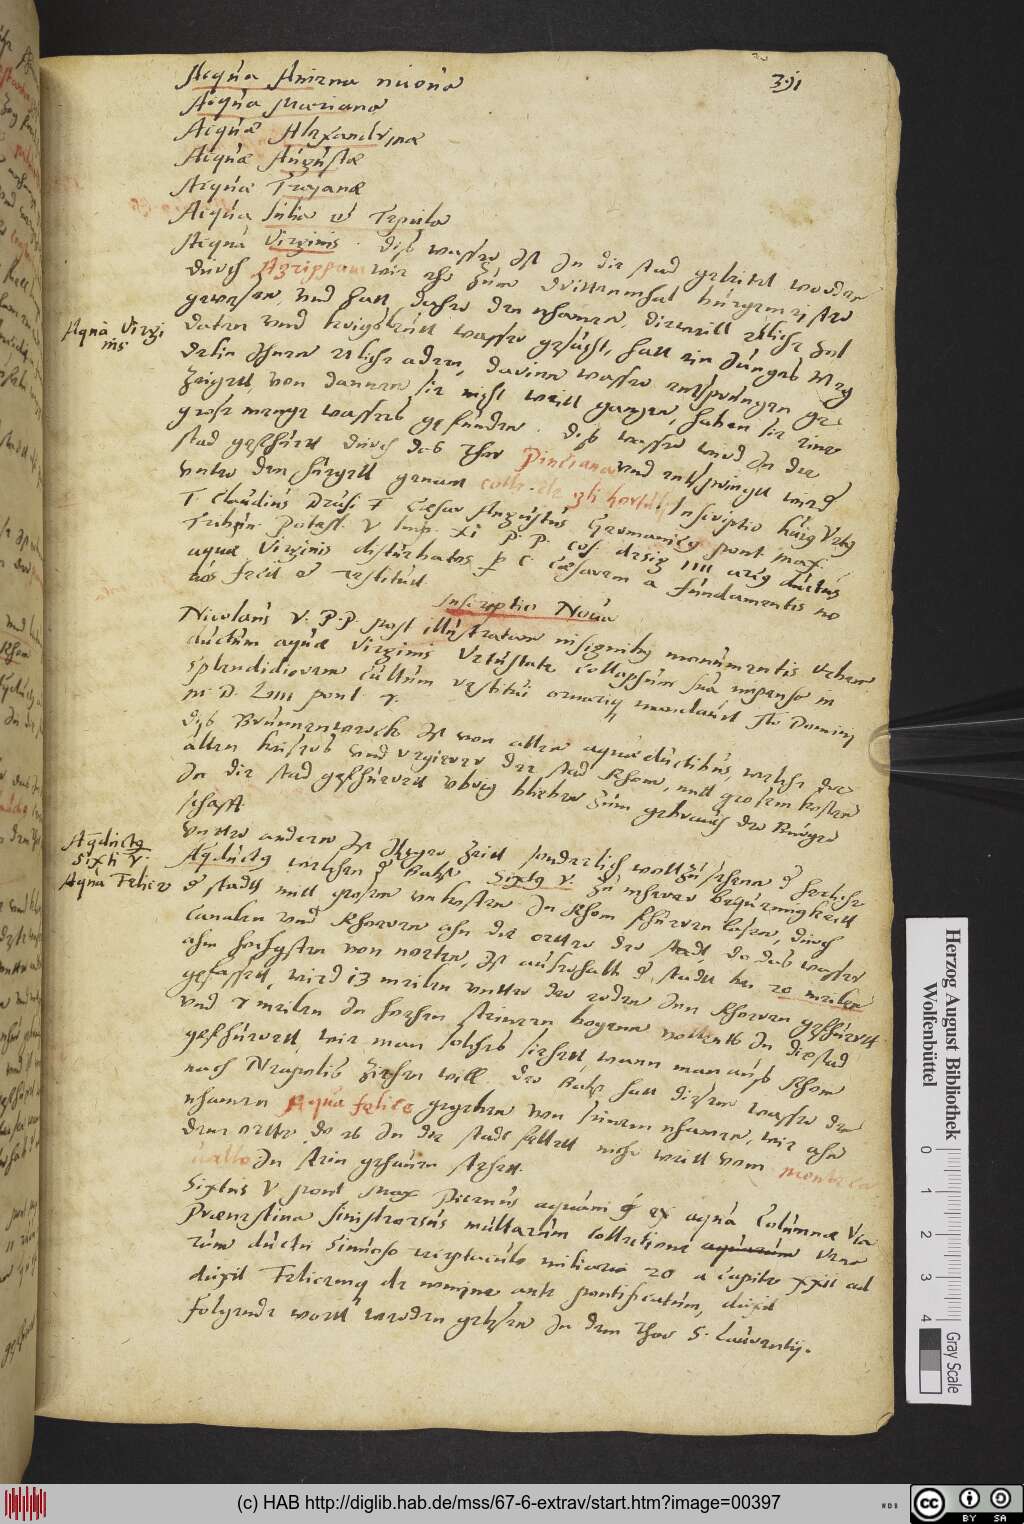 391
Acqua Aniena nuoua
Acqua Mariana
Acquæ Alexandrinæ
Acquæ Augustæ
Acquæ Traianæ
Acqua Iulia et Tepula
Acqua Virginis. Diss wasser ist in die stad geleitet worden
durch Agrippam wie ehr zum drittenmhal burgermeister
gewesen, und hatt dessen den nhamen, dieweill etliche
daten und wasser gesucht, hatt ein Junges
etliche adern, darinn wasser entsprungen ge
zeiget, von dannen sie nicht weitt gangen, haben sie eine
grose menge wassers gefunden. Diss wasser wird in die
stad gefhürtt durch das Thor Pinciana und entspringtt
unter den hügell genant colle de gli hortuli Inscriptio huius
T Claudius Drusi F Cæsar Augustus Germanicus pont max.
Tribun. potest. V Imp. XI P. P. cos. desig IIII arcus ductus
aquæ Virginis disturbatos p C. Cæsarem a fundamentis no
uos fecit et restituit
Inscriptio Noua
Nicolaus V. P.P. post illustratam insignibus monumentis urbem
ductum aquæ Virginis vetustate collapsum sua impensa in
splendidiorem cultum restitui ornarique mandauit Ao Domini
M. D. LIII pont. 7.
Dis Brunnenwerck ist von allen aquæductibus, welche der
alten keisers und regierer der stad Rhom, mitt grosem kosten
in die stad gefhüret ubrig blieben zum gebrauch der Burger
schafft
Unter andern ist itziger zeitt sonderlich woll zu sehenn
Aqductus welchen Babst Sixtus V zu mherer bequemigkeitt
stadtt mitt grosen unkosten in Rhom fhüren lassen, durch
Canalen und Rhoeren ahn die örtter der stadt do das wasser
ahm hochsten von nöten, ist auserhalb stadtt bei 20 meilen
gefasset, wird 13 meilen unter der erden inn Rhoeren gefhüret
und 7 meilen in hochen steinern bogenn in die stad
gefhüret, wie man solches siehet, wann man auss Rhom
nach Neapolis ziehen will. Der Babst hatt diesem wasser den
nhamen Acqua felice gegeben von seinem nhamen, wie ahn
dem ortte do es in die stadt felltt nichtt weitt vom monte ca
uallo in stein gehauen stehett.
Sixtus V pont Max Picenus aquam ex agro Columnæ via
Prænestina sinistrorsus multarum collectione aquarum vena
rum ductu sinuoso receptaculo miliario 20 a capite XXII ad
duxit Felicemque de nomine ante pontificatum, dixit
Folgende wortt werden gelesen in dem thor S. Laurentij.
Aqua Virgi
nis
Aqductus
Sixti V.
Aqua Felice
Herzog August Bibliothek
Wolfenbüttel
0 1 2 3 4
Gray Scale
(c) HAB http://diglib.hab.de/mss/67-6-extrav/start.htm?image=00397
WDB
cc BY SA